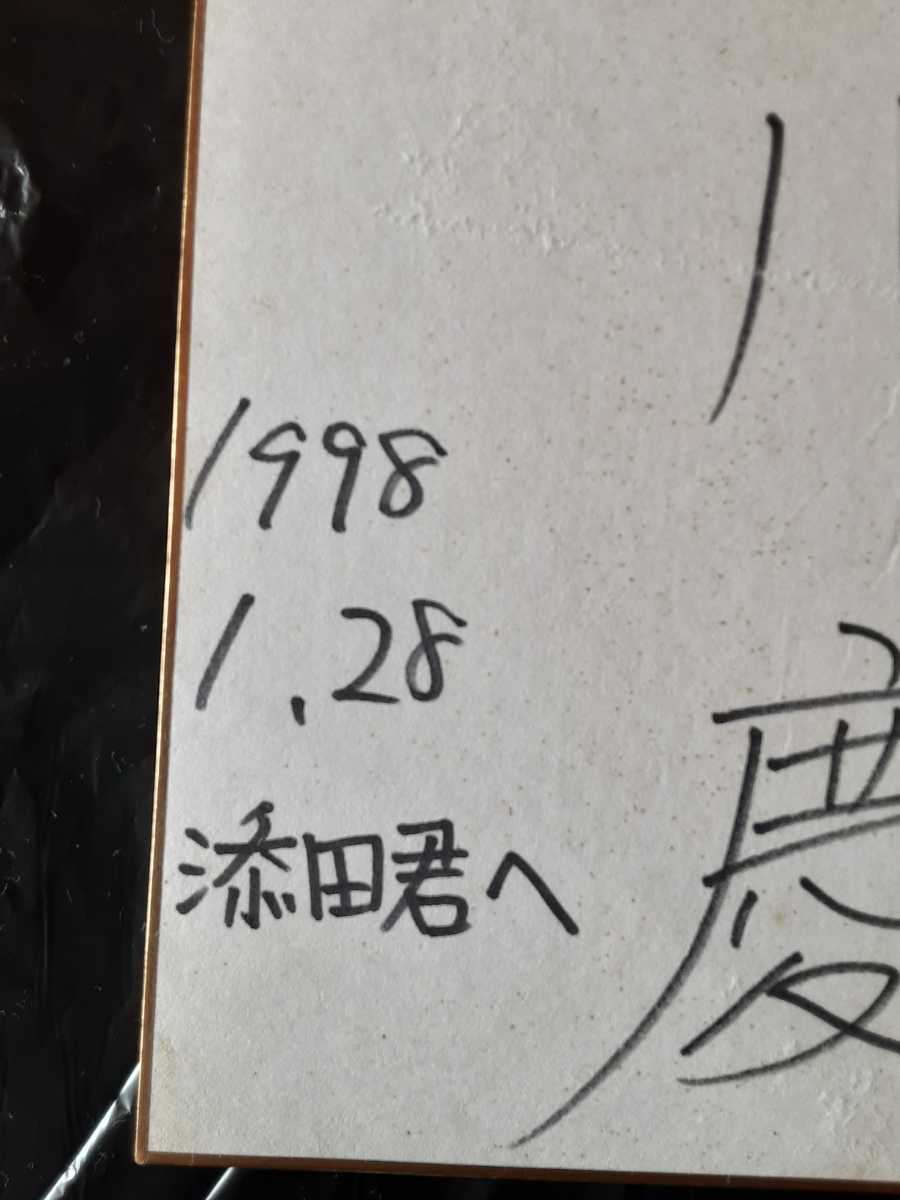 1998
1.28
添田君へ
慶